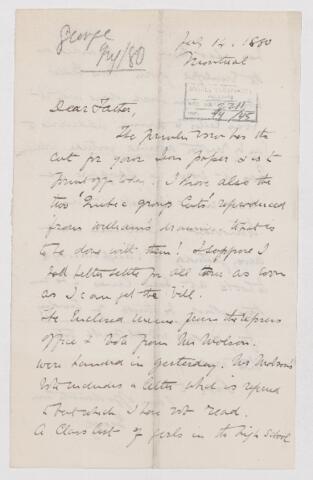 George
/80
July 14. 1880
Montreal
Dear Father,
The printer now has the
cut for your paper & is to
print off today. I have also the
two "Quebec group Cuts" reproduced
from William's drawing. What is
to be done with them? I suppose I
had better settle for all these as soon
as I can get the bill.
The Enclosed from the express
office & note from Mr Molson.
were handed in yesterday. Mr Molson's
note includes a letter which is
but which I have not read.
A Class list of girls in the High School